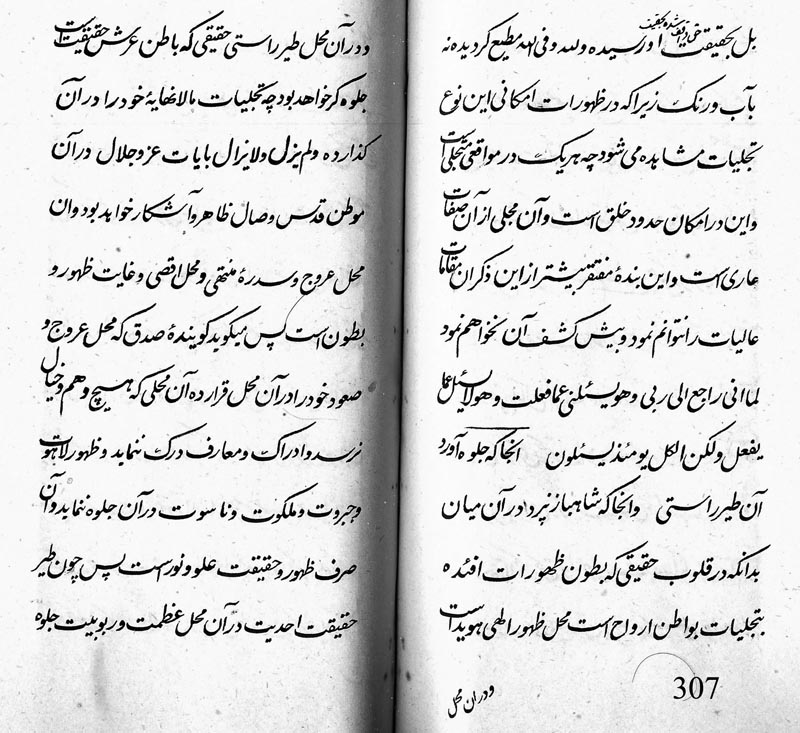 بل بحقیقت اور سیده ولله وفی الله مطیع کردیده نه
بآب ورنک زیراکه در ظهورات امکانی این نوع
تجلیات مشاهده می شود چه هریک در مواقعی متجلی است
واین در امکان حدود خلق است وآن مجلی از آن صفات
عاری است واین بندهٔ مفتقر بیشتر از این ذکر ان مقامات
عالیات را نتوانم نمود وبیش کشف آن نخواهم نمود
لما انی راجع الی ربی وهو یسئلنی عما فعلت وهو لا یسئل عما
یفعل ولکن الکل یومئذ یسئلون انجا که جلوه آورد
آن طیر راستی وانجا که شاهباز نپرد در آن میان
بدانکه در قلوب حقیقی که بطون ظهورات افئده
بتجلیات بواطن ارواح است محل ظهور الهی هویداست
ودران محل
307
ودر آن محل طیر راستی حقیقی که باطن عرش حقیقت است
جلوه کر خواهد بود چه تجلیات مالانهایهٔ خود را در آن
کذارده ولم یزل ولایزال بایات عز وجلال در آن
موطن قدس وصال ظاهر وآشکار خواهد بود وان
محل عروج وسدرهٔ منتهی ومحل اقصی وغایت ظهور و
بطون است پس میکوید کویندهٔ صدق که محل عروج و
صعود خود را در آن محل قرار ده آن محلی که هیچ وهم وخیال
نرسد وادراک ومعارف درک ننماید وظهور لاهوت
وجبروت وملکوت وناسوت در آن جلوه ننماید وآن
صرف ظهور وحقیقت علو ونور است پس چون طیر
حقیقت احدیت در آن محل عظمت وربوبیت جلوه